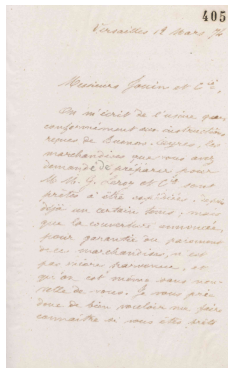 405
Versailles 12 Mars 74
Messieurs Jouin et Cie,
On m'écrit de l'usine que,
conformément aux instructions
reçues de Buenos-Ayres, les
marchandises que vous avez
demandé de préparer pour
M M. J. Leroy et Cie sont
prêtes à être expédiées, depuis
déjà un certain temps; mais
que la couverture annoncée,
pour garantie du paiement
de ces marchandises, n'est
pas encore parvenue, et
qu'on est même sans nou-
velle de vous. Je vous prie
donc de bien vouloir me faire
connaître si vous êtes prêts